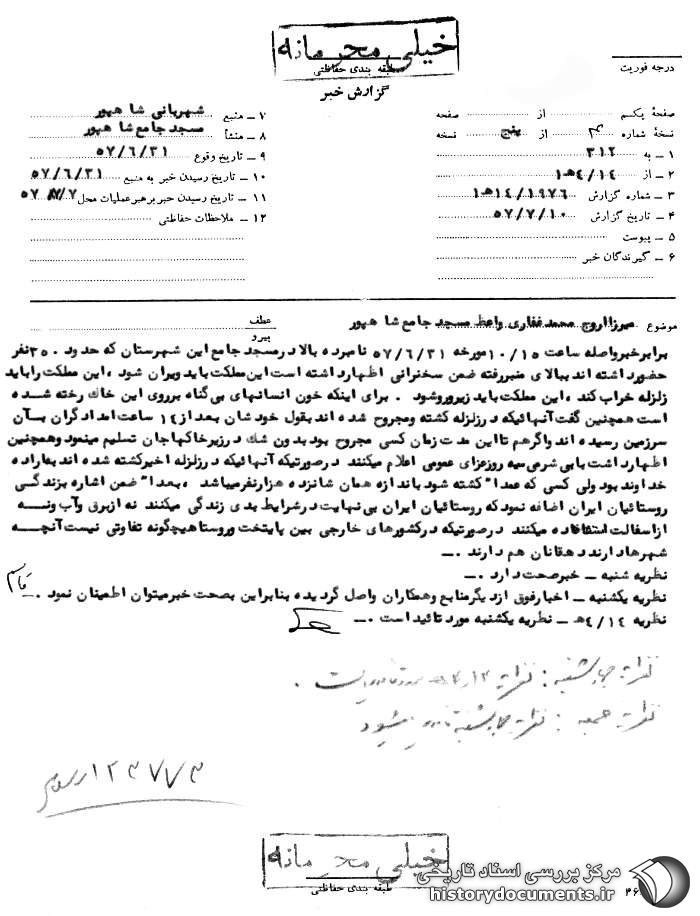 خیلی محرمانه
طبقه بندی حفاظتی
درجه فوریت
گزارش خبر
صفحهٔ یکم از صفحه
نسخهٔ شماره از پنج نسخه
۱ – به ۳۱۲
۲ – از ۴/۱۴هـ۱
۳ – شماره گزارش ۱۹۷۶/۱۴هـ۱
۴ – تاریخ گزارش ۵۷/۷/۱۰
۵ – پیوست
۶ – گیرندگان خبر
۷ – منبع شهربانی شاهپور
۸ – منشأ مسجد جامع شاهپور
۹ – تاریخ وقوع ۵۷/۶/۳۱
۱۰ – تاریخ رسیدن خبر به منبع ۵۷/۶/۳۱
۱۱ – تاریخ رسیدن خبر برهبر عملیات محل ۵۷/۷/۷
۱۲ – ملاحظات حفاظتی
موضوع میرزااروج محمدغفاری واعظ مسجد جامع شاهپور
عطف
پیرو
برابرخبرواصله ساعت ۱۰/۱۵مورخه ۵۷/۶/۳۱ نامبرده بالا درمسجد جامع این شهرستان که حدود ۳۵۰نفر
حضورداشته اند ببالای منبررفته ضمن سخنرانی اظهارداشته است این مملکت باید ویران شود ، این مملکت راباید
زلزله خراب کند ، این مملکت باید زیروروشود . برای اینکه خون انسانهای بی گناه برروی این خاك رخته شده
است همچنین گفت آنهائیکه درزلزله کشته ومجروح شده اند بقول خودشان بعد از۱۴ ساعت امدادگران بـآن
سرزمین رسیده اند واگرهم تااین مدت زمان کسی مجروح بود بدون شك درزیرخاکهاجان تسلیم مینمود وهمچنین
اظهارداشت بابی شرمی سه روزعزای عمومی اعلام میکنند درصورتیکه آنهائیکه درزلزله اخیرکشته شده اند به اراده
خداوند بود ولی کسی که عمداً کشته شود باندازه همان شانزده هزارنفرمیباشد ، بعداً ضمن اشاره بزندگی
روستائیان ایران اضافه نمود که روستائیان ایران بی نهایت درشرایط بدی زندگی میکنند نه ازبرق وآب ونـه
ازاسفالت استفاده میکنند درصورتیکه درکشورهای خارجی بین پایتخت وروستاهیچگونه تفاوتی نیست آنچـه
شهرهادارند دهقانان هم دارند .ــ
نظریه شنبه ــ خبرصحت دارد .ــ
نظریه یکشنبه ــ اخبارفوق ازدیگرمنابع وهمکاران واصل گردیده بنابراین بصحت خبرمیتوان اطمینان نمود .ــ
نظریه ۴/۱۴هـ ــ نظریه یکشنبه مورد تائید است .ــ
نظریه چهارشنبه : نظریه ست .
نظریه جمعه : نظریه چهارشنبه تائید میشود
خیلی محرمانه
طبقه بندی حفاظتی
مرکز بررسی اسناد تاریخی
historydocuments.ir